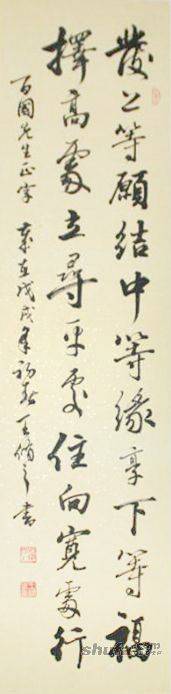 發上等願結中等緣享下等福
擇高處立尋平處住向寬處行
百國先生正字 歲在戊戌年初春 王脩之書